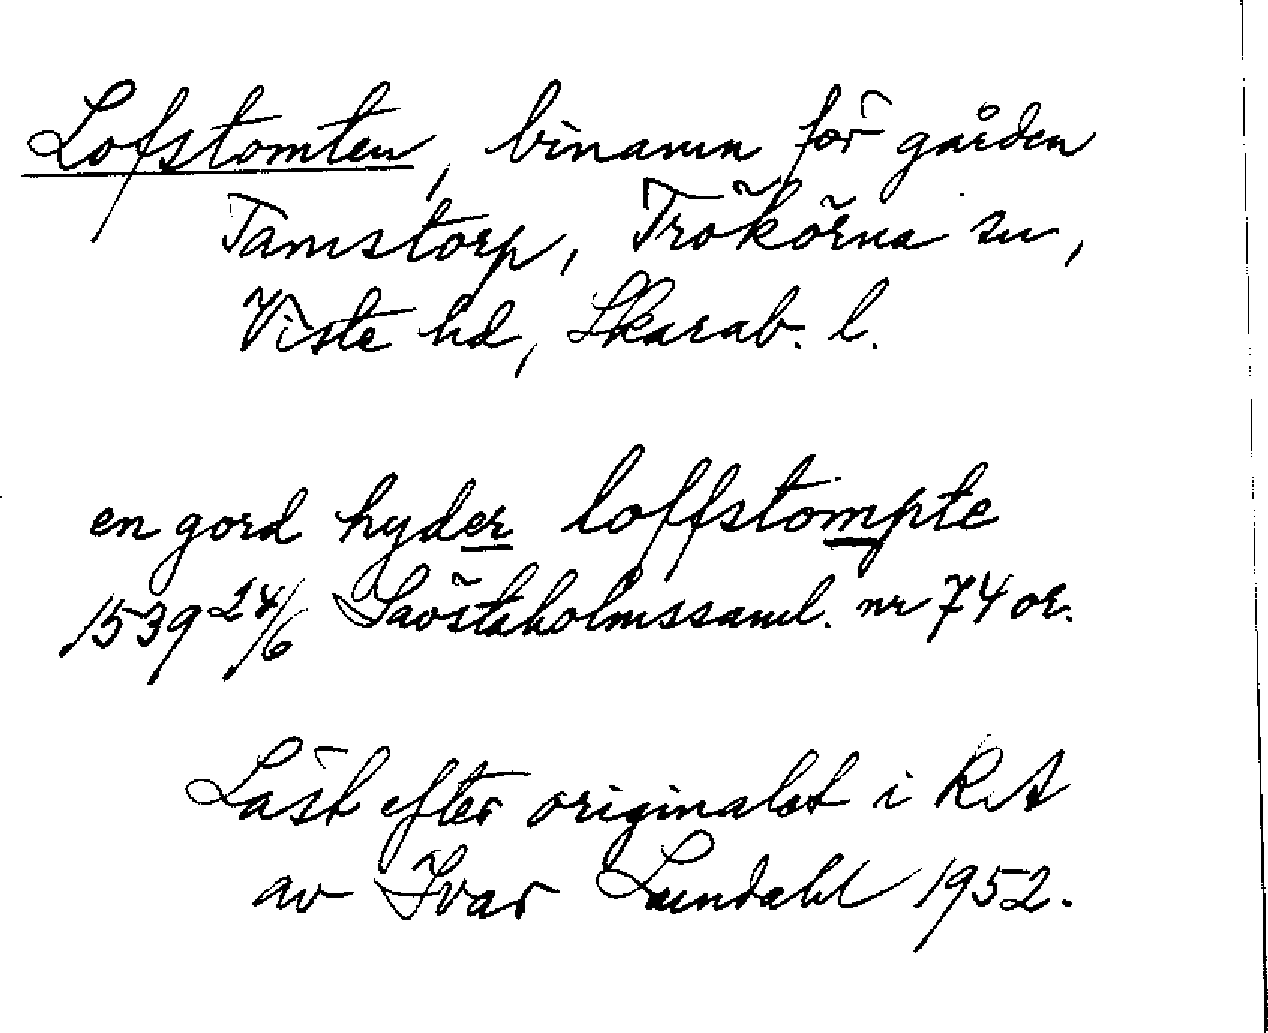 Lofstomten, binamn för gården
Tamstorp, Trökörna sn,
Viste hd, Skarab. l.
en gord hyder loffstompte
1539 24/6 Sävstaholmssaml. nr 74 or.
Läst efter originalet i RA
av Ivar Lundahl 1952.